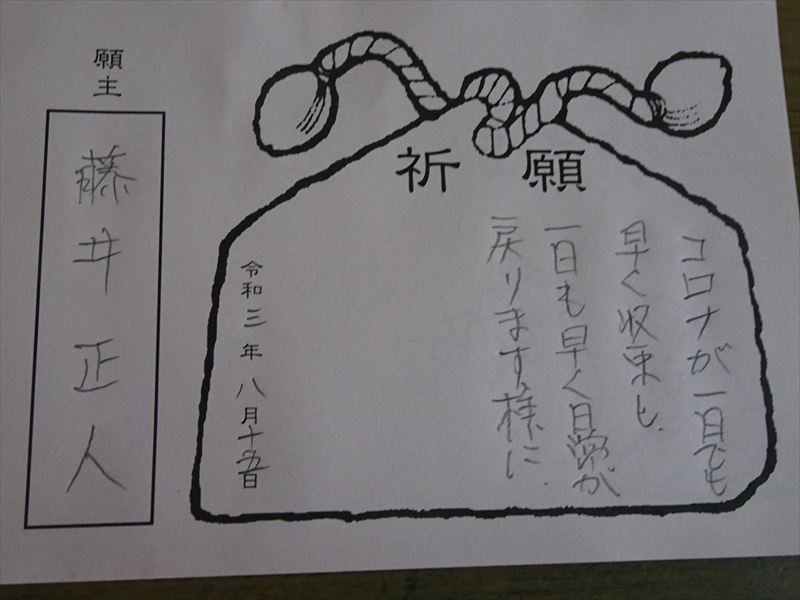 祈願
コロナが一日でも
早く収束し、
一日も早く日常が
戻ります様に
令和三年八月十五日
願主
藤井正人